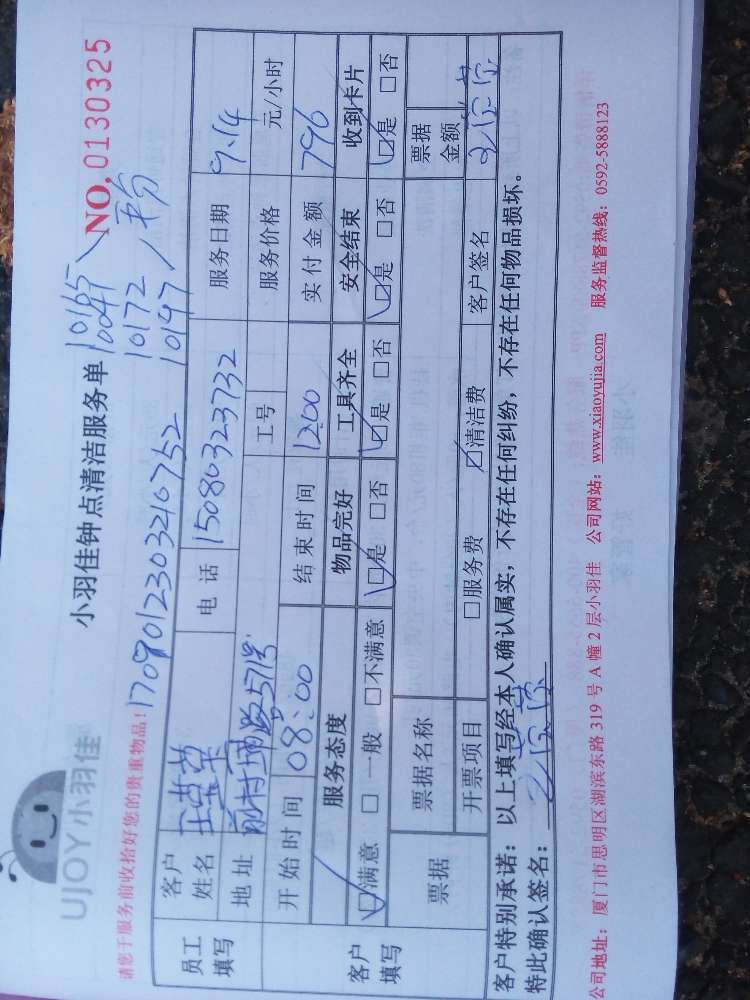 UJOY小羽佳
小羽佳钟点清洁服务单
NO.0130325
请您于服务前收拾好您的贵重物品!
1709012303210752
10165
10047
10172
10197
员工填写
客户姓名
电话 15080323732
服务日期 9.14
地址
571号
工号
服务价格 元/小时
开始时间 08:00
结束时间 12:00
实付金额 796
客户填写
服务态度 物品完好 工具齐全 安全结束 收到卡片
☑满意 □一般 □不满意 ☑是 □否 ☑是 □否 ☑是 □否 ☑是 □否
票据
票据名称
票据金额
开票项目 □服务费 ☑清洁费 客户签名
客户特别承诺：以上填写经本人确认属实，不存在任何纠纷，不存在任何物品损坏。
特此确认签名：
公司地址：厦门市思明区湖滨东路 319 号 A 幢 2 层小羽佳 公司网站：www.xiaoyujia.com 服务监督热线：0592-5888123